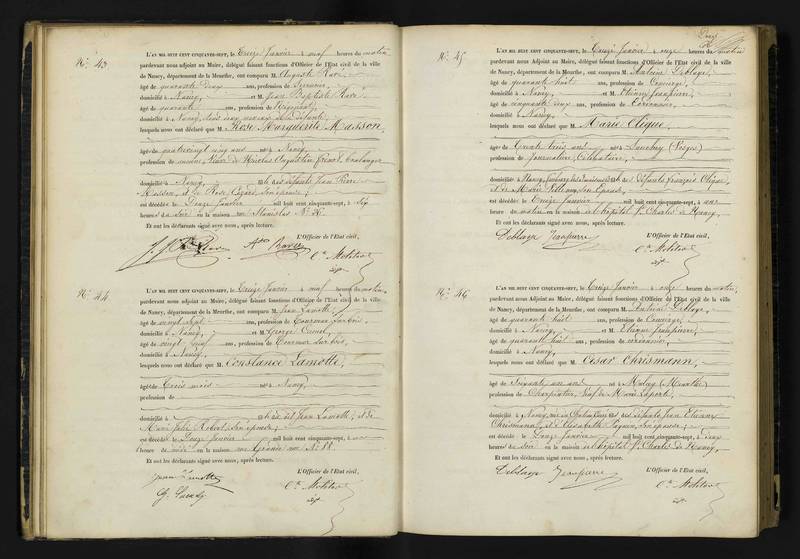 No. 43
L'AN MIL HUIT CENT CINQUANTE-SEPT, le Treize Janvier à neuf heures du matin
pardevant nous Adjoint au Maire, délégué faisant fonctions d'Officier de l'Etat civil de la ville
de Nancy, département de la Meurthe, ont comparu M. Auguste
âgé de quarante deux ans, profession de
domicilié à Nancy, et M. Jean Baptiste
âgé de quarante ans, profession de
domicilié à Nancy,
lesquels nous ont déclaré que M. Rose Marguerite Masson,
âgé de quatrevingt cinq ans né à Nancy
profession de Veuve de Nicolas Augustin
domicilié à Nancy, fille des défunts Jean Pierre
Masson, et de Rose
est décédé le Douze Janvier mil huit cent cinquante-sept, à Sept
heures du Soir en la maison rue Stanislas No.
Et ont les déclarants signé avec nous, après lecture.
L'Officier de l'Etat civil,
No. 44
L'AN MIL HUIT CENT CINQUANTE-SEPT, le Treize Janvier à neuf heures du matin,
pardevant nous Adjoint au Maire, délégué faisant fonctions d'Officier de l'Etat civil de la ville
de Nancy, département de la Meurthe, ont comparu M. Jean Lamotte,
âgé de vingt sept ans, profession de Tourneur sur bois,
domicilié à Nancy, et M. George
âgé de vingt neuf ans, profession de Tourneur sur bois,
domicilié à Nancy,
lesquels nous ont déclaré que M. Constance Lamotte,
âgé de Trois mois né à Nancy,
profession de
domicilié à fille dudit Jean Lamotte, et de
Marie Julie Robert, Son épouse,
est décédé le Douze Janvier mil huit cent cinquante-sept, à
heures du en la maison rue No.
Et ont les déclarants signé avec nous, après lecture.
L'Officier de l'Etat civil,
Jean Lamotte
No. 45
L'AN MIL HUIT CENT CINQUANTE-SEPT, le Treize Janvier à onze heures du matin
pardevant nous Adjoint au Maire, délégué faisant fonctions d'Officier de l'Etat civil de la ville
de Nancy, département de la Meurthe, ont comparu M. Antoine Deblaye,
âgé de quarante huit ans, profession de Concierge,
domicilié à Nancy, et M. Etienne Jeanpierre,
âgé de cinquante deux ans, profession de Cordonnier,
domicilié à Nancy,
lesquels nous ont déclaré que M. Marie Clique,
âgé de Trente trois ans né à (Vosges)
profession de Journalière, Célibataire,
domicilié à Nancy, faubourg des fille de défunts François Clique,
et de Marie Son Epouse,
est décédé le Treize Janvier mil huit cent cinquante-sept, à une
heure du matin en la maison de l'hôpital St. Charles de Nancy.
Et ont les déclarants signé avec nous, après lecture.
L'Officier de l'Etat civil,
Deblaye Jeanpierre
No. 46
L'AN MIL HUIT CENT CINQUANTE-SEPT, le Treize Janvier à onze heures du matin,
pardevant nous Adjoint au Maire, délégué faisant fonctions d'Officier de l'Etat civil de la ville
de Nancy, département de la Meurthe, ont comparu M. Antoine Deblaye,
âgé de quarante huit ans, profession de Concierge,
domicilié à Nancy, et M. Etienne Jeanpierre,
âgé de ans, profession de cordonnier,
domicilié à Nancy,
lesquels nous ont déclaré que M. César Chrismann,
âgé de Soixante un ans né à (Meurthe)
profession de Charpentier, Veuf de Marie Laporte,
domicilié à Nancy, fils des défunts Jean Etienne
Chrismann, et d'Elisabeth Son épouse,
est décédé le Douze Janvier mil huit cent cinquante-sept, à Deux
heures du Soir en la maison de l'hôpital St. Charles de Nancy,
Et ont les déclarants signé avec nous, après lecture.
L'Officier de l'Etat civil,
Deblaye Jeanpierre